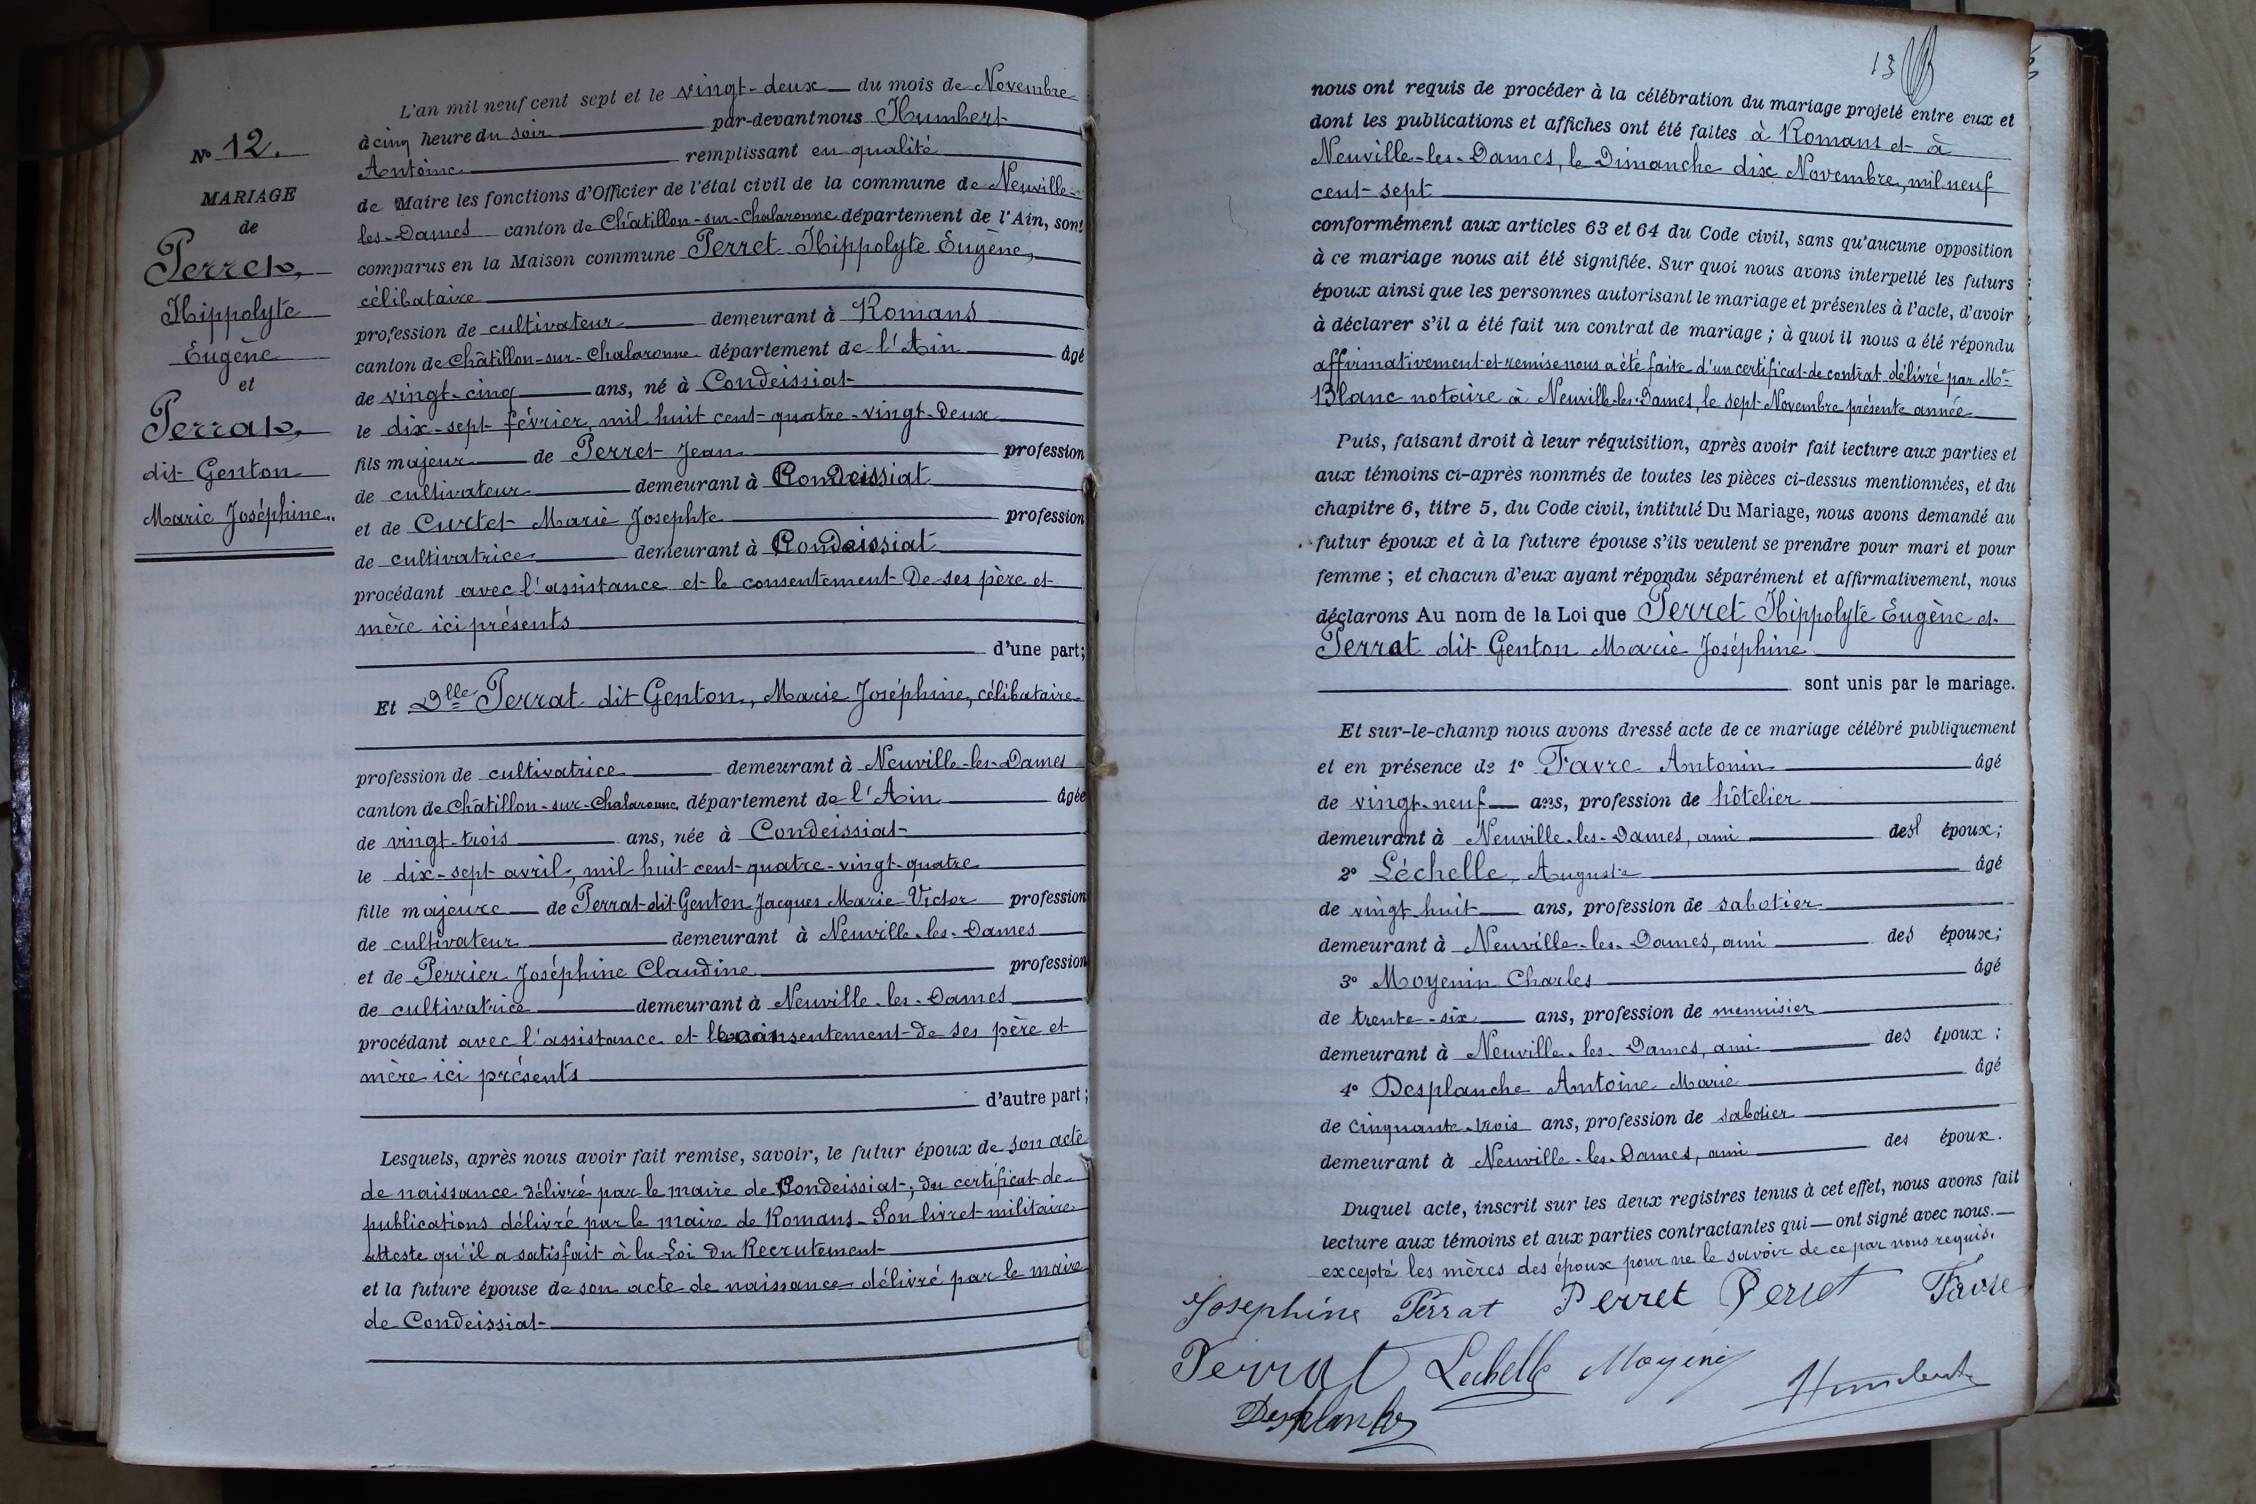 N° 12.
MARIAGE
de
Perret,
Hippolyte
Eugène
et
Perrat,
dit Genton
Marie Joséphine.
L'an mil neuf cent sept et le vingt-deux du mois de Novembre
à cinq heure du soir par-devant nous Humbert
Antoine remplissant en qualité
de Maire les fonctions d'Officier de l'état civil de la commune de Neuville-
les-Dames canton de Châtillon-sur-Chalaronne département de l'Ain, sont
comparus en la Maison commune Perret Hippolyte Eugène,
célibataire
profession de cultivateur demeurant à Romans
canton de Châtillon-sur-Chalaronne département de l'Ain âgé
de vingt-cinq ans, né à Condeissiat
le dix-sept février, mil huit cent quatre-vingt-deux
fils majeur de Perret Jean profession
de cultivateur demeurant à Condeissiat
et de Curtet Marie Josephte profession
de cultivatrice demeurant à Condeissiat
procédant avec l'assistance et le consentement de ses père et
mère ici présents
d'une part;
Et Dlle Perrat dit Genton, Marie Joséphine, célibataire
profession de cultivatrice demeurant à Neuville-les-Dames
canton de Châtillon-sur-Chalaronne département de l'Ain âgée
de vingt-trois ans, née à Condeissiat
le dix-sept avril, mil huit cent quatre-vingt-quatre
fille majeure de Perrat-dit-Genton Jacques Marie Victor profession
de cultivateur demeurant à Neuville-les-Dames
et de Perrier Joséphine Claudine profession
de cultivatrice demeurant à Neuville-les-Dames
procédant avec l'assistance et le consentement de ses père et
mère ici présents
d'autre part;
Lesquels, après nous avoir fait remise, savoir, le futur époux de son acte
de naissance délivré par le maire de Condeissiat; du certificat de
publications délivré par le maire de Romans. Son livret militaire
atteste qu'il a satisfait à la Loi du Recrutement
et la future épouse de son acte de naissance délivré par le maire
de Condeissiat
13
nous ont requis de procéder à la célébration du mariage projeté entre eux et
dont les publications et affiches ont été faites à Romans et à
Neuville-les-Dames, le Dimanche dix Novembre, mil neuf
cent sept
conformément aux articles 63 et 64 du Code civil, sans qu'aucune opposition
à ce mariage nous ait été signifiée. Sur quoi nous avons interpellé les futurs
époux ainsi que les personnes autorisant le mariage et présentes à l'acte, d'avoir
à déclarer s'il a été fait un contrat de mariage; à quoi il nous a été répondu
affirmativement et remise nous a été faite d'un certificat de contrat délivré par Me
Blanc notaire à Neuville-les-Dames, le sept Novembre présente année
Puis, faisant droit à leur réquisition, après avoir fait lecture aux parties et
aux témoins ci-après nommés de toutes les pièces ci-dessus mentionnées, et du
chapitre 6, titre 5, du Code civil, intitulé Du Mariage, nous avons demandé au
futur époux et à la future épouse s'ils veulent se prendre pour mari et pour
femme; et chacun d'eux ayant répondu séparément et affirmativement, nous
déclarons Au nom de la Loi que Perret Hippolyte Eugène et
Perrat dit Genton Marie Joséphine
sont unis par le mariage.
Et sur-le-champ nous avons dressé acte de ce mariage célébré publiquement
et en présence de 1° Favre Antonin âgé
de vingt-neuf ans, profession de hôtelier
demeurant à Neuville-les-Dames, ami des époux;
2° Léchelle, Auguste âgé
de vingt huit ans, profession de sabotier
demeurant à Neuville-les-Dames, ami des époux;
3° Moyenin Charles âgé
de trente-six ans, profession de menuisier
demeurant à Neuville-les-Dames, ami des époux;
4° Desplanche Antoine Marie âgé
de cinquante-trois ans, profession de sabotier
demeurant à Neuville-les-Dames, ami des époux.
Duquel acte, inscrit sur les deux registres tenus à cet effet, nous avons fait
lecture aux témoins et aux parties contractantes qui ont signé avec nous.
excepté les mères des époux pour ne le savoir de ce par nous requis.
Josephine Perrat Perret Perret Favre
Perrat Lechelle Moyenin Humbert
Desplanche